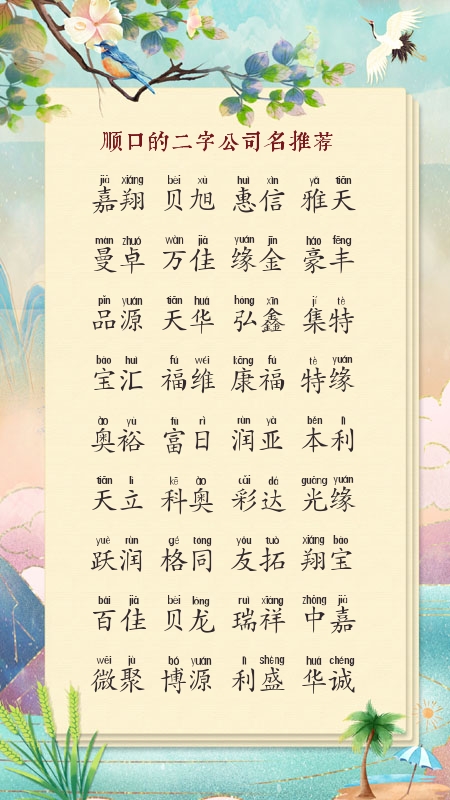 顺口的二字公司名推荐
jiā xiáng bèi xù huì xìn yǎ tiān
嘉翔 贝旭 惠信 雅天
màn zhuó wàn jiā yuán jīn háo fēng
曼卓 万佳 缘金 豪丰
pǐn yuán tiān huá hóng xīn jí tè
品源 天华 弘鑫 集特
bǎo huì fú wéi kāng fú tè yuán
宝汇 福维 康福 特缘
ào yù fù rì rùn yà běn lì
奥裕 富日 润亚 本利
tiān lì kē ào cǎi dá guāng yuán
天立 科奥 彩达 光缘
yuè rùn gé tóng yǒu tuò xiáng bǎo
跃润 格同 友拓 翔宝
bǎi jiā bèi lóng ruì xiáng zhōng jiā
百佳 贝龙 瑞祥 中嘉
wēi jù bó yuán lì shèng huá chéng
微聚 博源 利盛 华诚